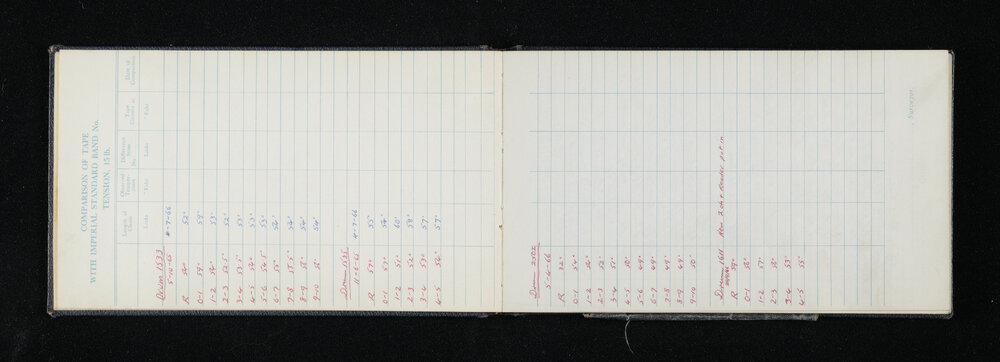 COMPARISON OF TAPE
WITH IMPERIAL STANDARD BAND No.
TENSION, 15 lb.
Length of Chain
Observed Temperature
Difference from
No.
Tape Correct at
Date of Comparison
Links
°Fahr.
Links
°Fahr.
Drum 1533
5-10-65 4-7-66
R 56° 52°
0-1 59° 59°
1-2 56° 53°
2-3 52.5° 52°
3-4 53.5° 53°
4-5 56° 53°
5-6 56.5° 55°
6-7 55° 56°
7-8 55.5° 56°
8-9 56° 54°
9-10 56° 54°
Drum 1535
11-6-65 4-7-66
R 57° 55°
0-1 57° 54°
1-2 51° 60°
2-3 56° 58°
3-4 53° 57°
4-5 56° 57°
Drum 2502
5-4-66
R 52°
0-1 54°
1-2 56°
2-3 52°
3-4 51°
4-5 50°
5-6 49°
6-7 49°
7-8 49°
8-9 49°
9-10 50°
Drum 1611 New
R 59°
0-1 56°
1-2 57°
2-3 58°
3-4 53°
4-5 55°
, Surveyor.